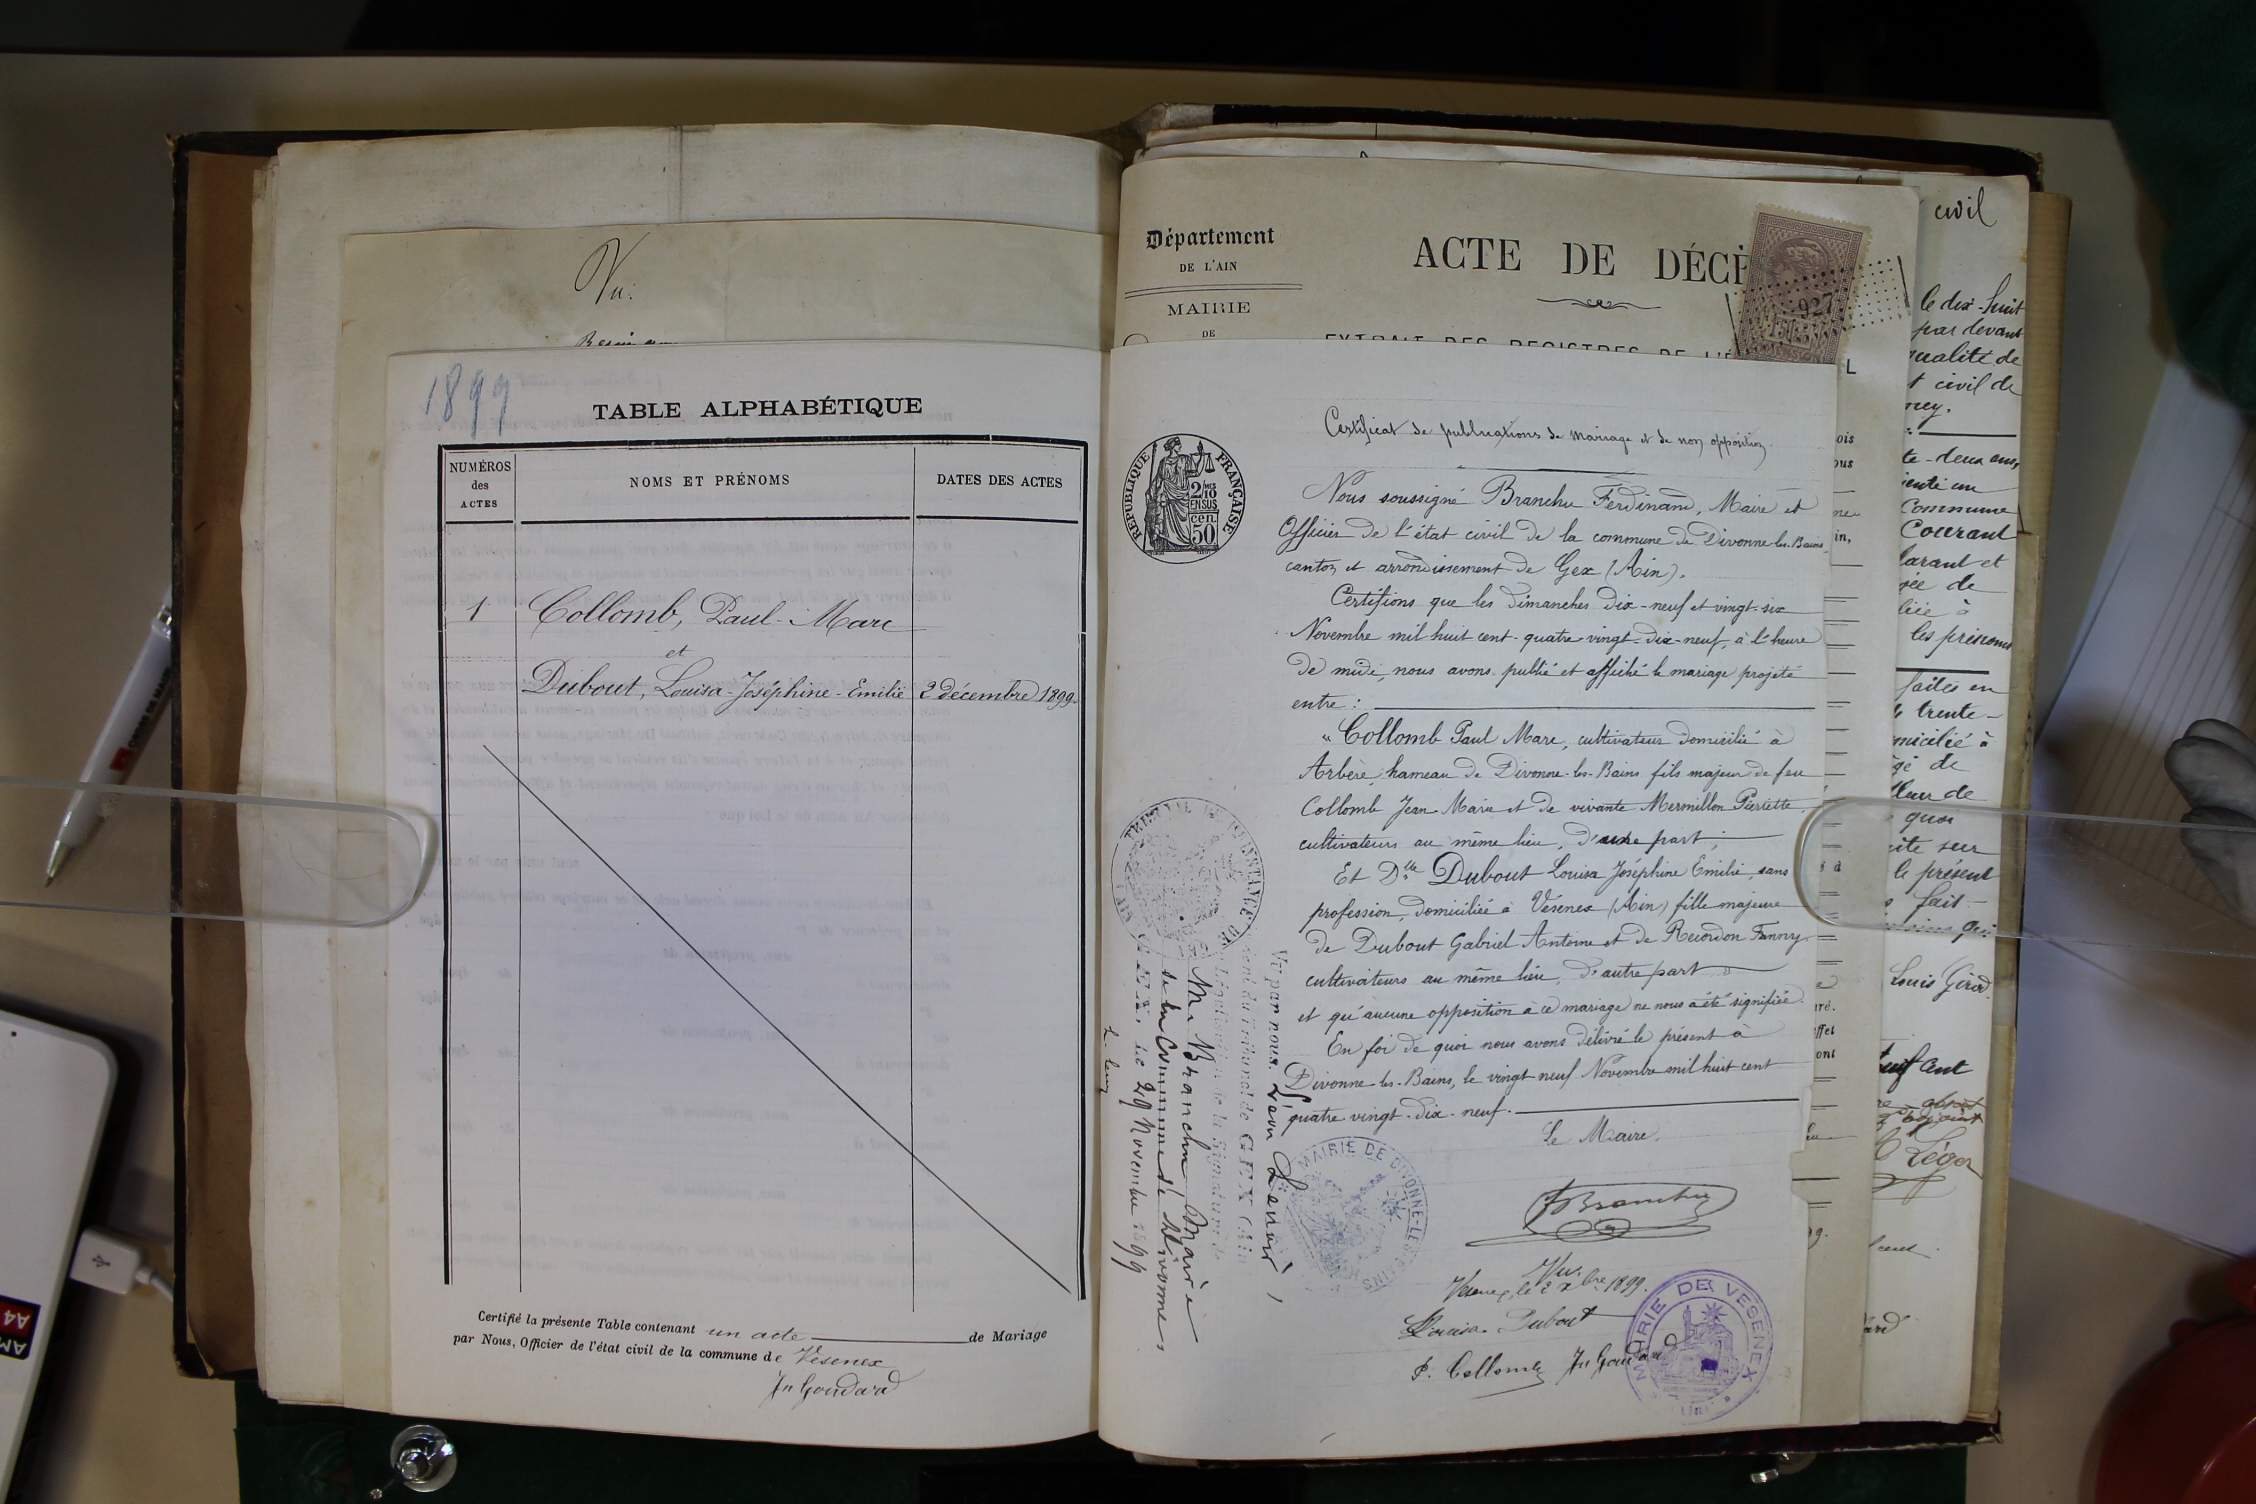 1899
TABLE ALPHABÉTIQUE
NUMÉROS
des
ACTES
NOMS ET PRÉNOMS
DATES DES ACTES
1 Collomb, Paul-Marc
et
Dubout, Louisa-Joséphine-Emilie 2 décembre 1899.
Certifié la présente Table contenant un acte de Mariage
par Nous, Officier de l'état civil de la commune de Vésenex
Jn Goudard
Vu:
Département
DE L'AIN
MAIRIE
DE
ACTE DE DÉCÈ
EXTRAIT DES REGISTRES DE L'É L
927
RÉPUBLIQUE FRANÇAISE
2/10
EN SUS
50
cen.
Certificat de publications de mariage et de non opposition
Nous soussigné Branchu Ferdinand, Maire et
Officier de l'état civil de la commune de Divonne-les-Bains,
canton et arrondissement de Gex (Ain).
Certifions que les dimanches dix-neuf et vingt-six
Novembre mil huit cent-quatre vingt-dix-neuf, à l'heure
de midi, nous avons publié et affiché le mariage projeté
entre :
"Collomb Paul Marc, cultivateur domicilié à
Arbère, hameau de Divonne-les-Bains fils majeur de feu
Collomb Jean Marie et de vivante Mermillon Pierrette,
cultivateurs au même lieu, d'une part ;
Et Dlle Dubout Louisa Joséphine Emilie, sans
profession, domiciliée à Vésenex (Ain) fille majeure
de Dubout Gabriel Antoine et de Recordon Fanny
cultivateurs au même lieu, d'autre part
et qu'aucune opposition à ce mariage ne nous a été signifiée.
En foi de quoi nous avons délivré le présent à
Divonne-les-Bains, le vingt neuf Novembre mil huit cent
quatre-vingt-dix-neuf.
Le Maire,
FBranchu
MAIRIE DE DIVONNE-LES-BAINS
Vu.
Vesenex, le 2 Xbre 1899.
Louisa Dubout
P. Collomb Jn Goudard
MAIRIE DE VESENEX
Vu par nous
du Tribunal de GEX (Ain)
la Signature de
M. Branchu, Maire
de la Commune de Divonne
29 Novembre 1899
civil
le dix-huit
par devant
qualité de
t civil de
te-deux ans,
commune
Courant
larant et
de
à
les prénoms
faites en
trente-
micilié à
de
de
quoi
sur
le présent
fait
Louis Girod.
neuf cent
Léger